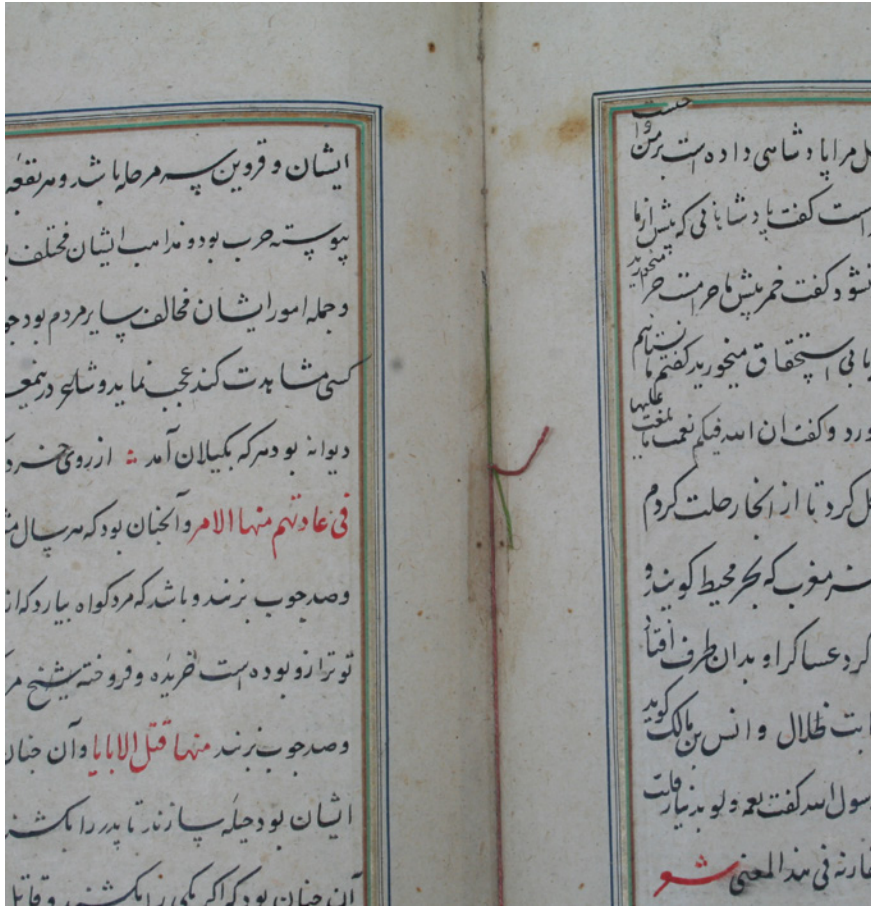 مرا پادشاهی داده است بر من
است گفت پادشاهانی که پیش از ما
نشود گفت خمر پیش ما حرامست چرا
استحقاق میخورید گفتم ما
ورد و گفت ان الله فیکم نعمة ما بلغت علیها
کرد تا از انجا رحلت کردم
مغرب که بحر محیط گویند و
کرد عساکر او بدان طرف افتاد
ظلال و انس بن مالک گوید
رسول الله گفت نعم و لو
فی هذا المعنی شعر
ایشان و قزوین سه مرحله باشد و هر بقعه
پیوسته حرب بود و مذاهب ایشان مختلف
و جمله امور ایشان مخالف سایر مردم بود
کسی مشاهدت کند عجب نماید و شاعر
دیوانه بود هر که بکیلان آمد از روی خرد
فی عادتهم منها الامر و آنچنان بود که هر سال
و صد چوب بزنند و باشد که مرد کواه بیارد که
تو ترازو بوده است خریده و فروخته شیخ
و صد چوب بزنند منها قتل الابایا و آن چنان
ایشان بود حیله سازند تا پدر را بکشند
آن چنان بود که اکر یکی را بکشند و قاتل